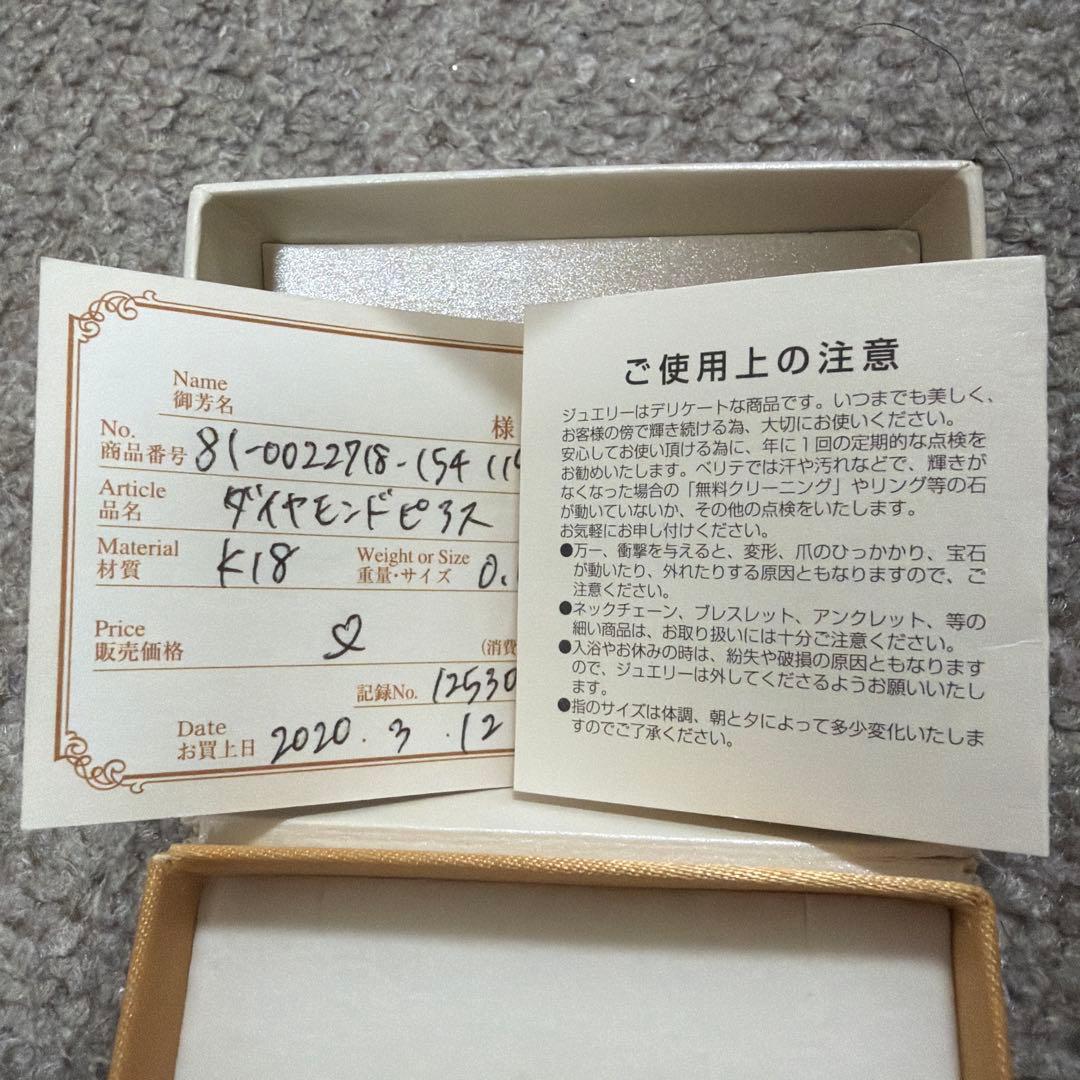 Name
御芳名
様
No.
商品番号 81-0022718-154 11
Article
品名 ダイヤモンドピアス
Material
材質 K18
Weight or Size
重量・サイズ 0.
Price
販売価格
(消費
記録No. 12530
Date
お買上日 2020.3.12
ご使用上の注意
ジュエリーはデリケートな商品です。いつまでも美しく、
お客様の傍で輝き続ける為、大切にお使いください。
安心してお使い頂ける為に、年に1回の定期的な点検を
お勧めいたします。ベリテでは汗や汚れなどで、輝きが
なくなった場合の「無料クリーニング」やリング等の石
が動いていないか、その他の点検をいたします。
お気軽にお申し付けください。
●万一、衝撃を与えると、変形、爪のひっかかり、宝石
が動いたり、外れたりする原因ともなりますので、ご
注意ください。
●ネックチェーン、ブレスレット、アンクレット、等の
細い商品は、お取り扱いには十分ご注意ください。
●入浴やお休みの時は、紛失や破損の原因ともなります
ので、ジュエリーは外してくださるようお願いいたし
ます。
●指のサイズは体調、朝と夕によって多少変化いたしま
すのでご了承ください。